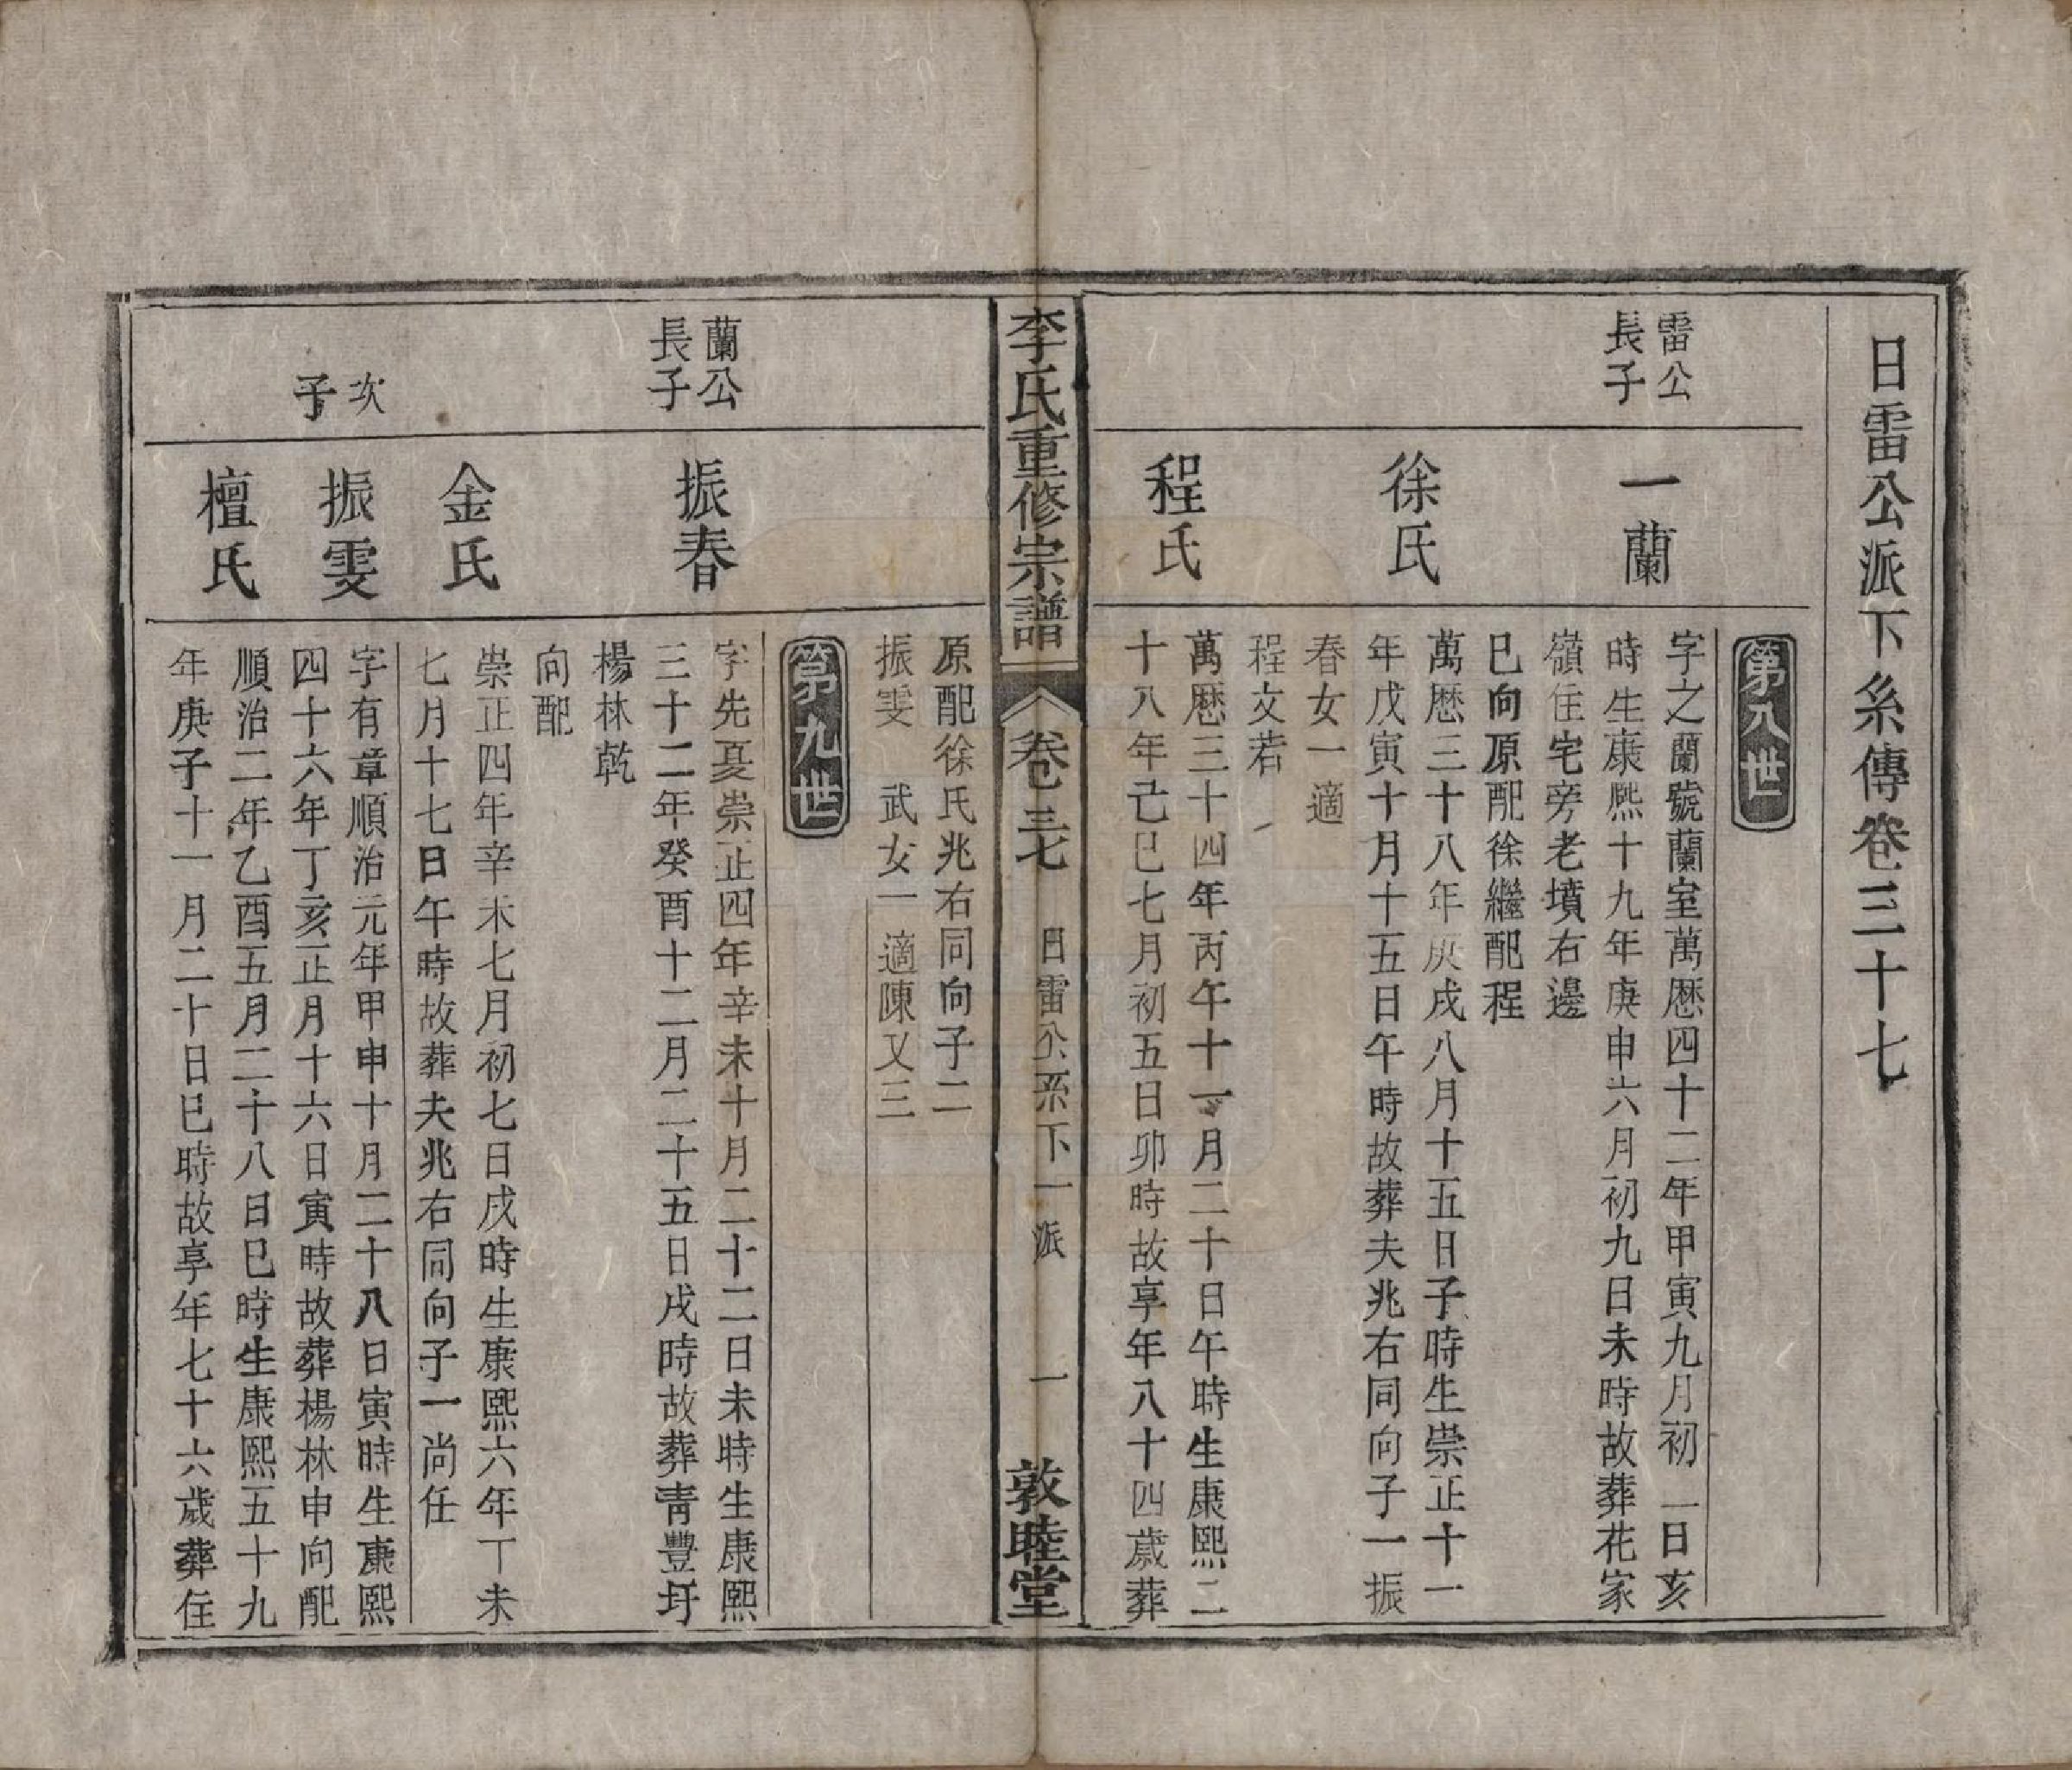 日雷公派下系傳卷三十七
第八世
雷公
長子
一蘭
字之蘭號蘭室萬厯四十二年甲寅九月初一日亥
時生康熙十九年庚申六月初九日未時故葬花家
嶺住宅旁老墳右邊
巳向原配徐繼配程
徐氏
萬厯三十八年庚戌八月十五日子時生崇正十一
年戊寅十月十五日午時故葬夫兆右同向子一振
春女一適
程文若
程氏
萬厯三十四年丙午十一月二十日午時生康熙二
十八年己巳七月初五日卯時故享年八十四歲葬
李氏重修宗譜
卷三七
日雷公系下一派
一
敦睦堂
原配徐氏兆右同向子二
振雯 武女一適陳又三
第九世
蘭公
長子
振春
字先憂崇正四年辛未十月二十二日未時生康熙
三十二年癸酉十二月二十五日戌時故葬青豐圩
楊林乾
向配
金氏
崇正四年辛未七月初七日戌時生康熙六年丁未
七月十七日午時故葬夫兆右同向子一尚任
次
子
振雯
字有章順治元年甲申十月二十八日寅時生康熙
四十六年丁亥正月十六日寅時故葬楊林申向配
檀氏
順治二年乙酉五月二十八日巳時生康熙五十九
年庚子十一月二十日巳時故享年七十六歲葬住